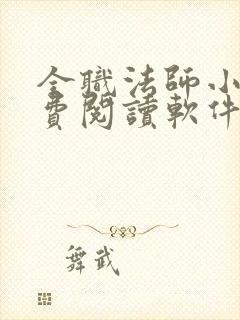 全職法師小
費閱讀軟件
舞武